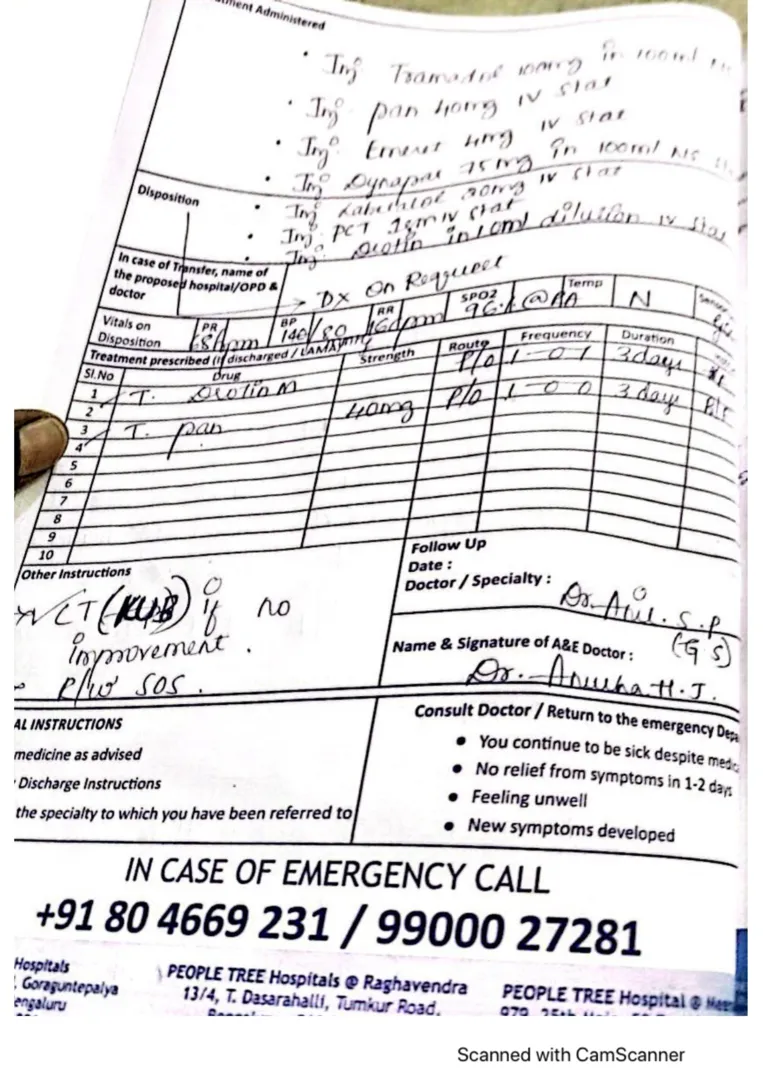 Administered
• Inj Tramadol 100mg in 100ml NS
• Inj pan 40mg IV Stat
• Inj Emeset 4mg IV Stat
• Inj Dynapar 75mg in 100ml NS
Disposition
• Inj 20mg IV Stat
• Inj. PCT 1gm IV Stat
• Inj Drotin in 10ml dilution IV Stat
In case of Transfer, name of
the proposed hospital/OPD &
doctor
Dx On Request
Vitals on
Disposition
PR
BP 140/80
RR
SPO2 96% @RA
Temp N
Treatment prescribed (if discharged / LAMA)
Sl.No Drug Strength Route Frequency Duration
1 T. Drotin M P/o 1-0-1 3 days
2
3 T. pan 40mg P/o 1-0-0 3 day
4
5
6
7
8
9
10
Other Instructions
CT (KUB) if no
improvement.
SOS.
Follow Up
Date :
Doctor / Specialty :
Dr. Anil. S. P
(G S)
Name & Signature of A&E Doctor :
Dr. Anusha H. J.
AL INSTRUCTIONS
medicine as advised
Discharge Instructions
the specialty to which you have been referred to
Consult Doctor / Return to the emergency
• You continue to be sick despite
• No relief from symptoms in 1-2 days
• Feeling unwell
• New symptoms developed
IN CASE OF EMERGENCY CALL
+91 80 4669 231 / 99000 27281
Hospitals
Goraguntepalya
PEOPLE TREE Hospitals @ Raghavendra
13/4, T. Dasarahalli, Tumkur Road,
PEOPLE TREE Hospital @
Scanned with CamScanner